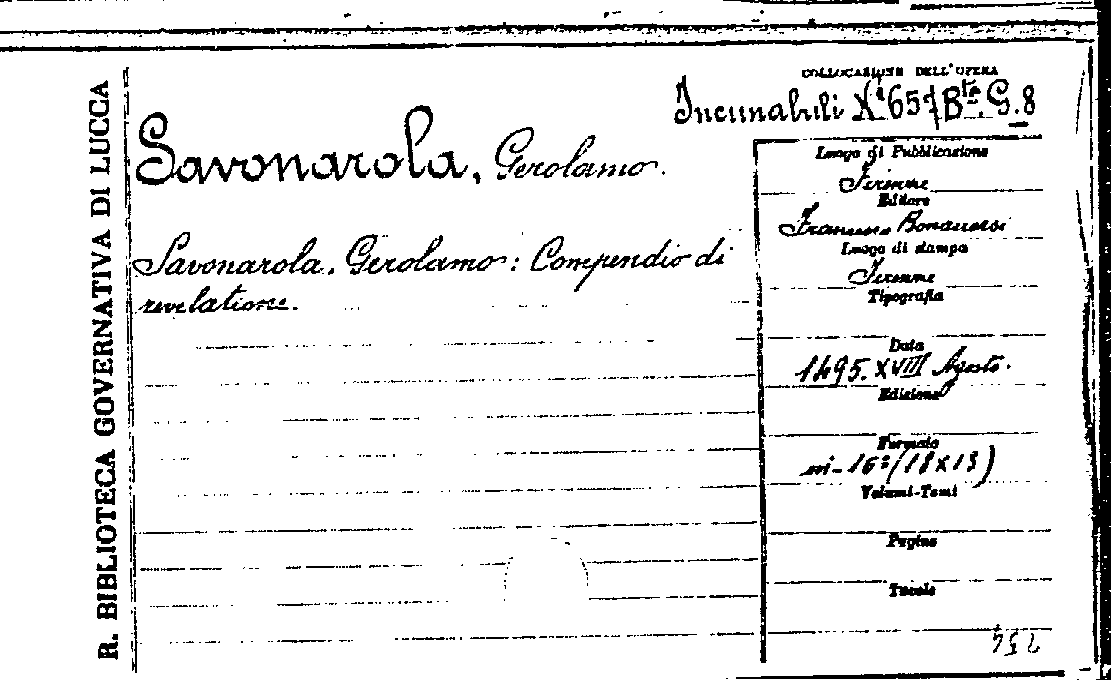 R. BIBLIOTECA GOVERNATIVA DI LUCCA
COLLOCAZIONE DELL'OPERA
Incunabuli N.i 657 B.ta G.8
Savonarola, Gerolamo.
Savonarola. Gerolamo: Compendio di
revelatione.
Luogo di Pubblicazione
Firenze
Editore
Francesco Bonaccorsi
Luogo di stampa
Firenze
Tipografia
Data
1495. XVIII Agosto.
Edizione
Formato
in-16º (18x13)
Volumi-Tomi
Pagine
Tavole